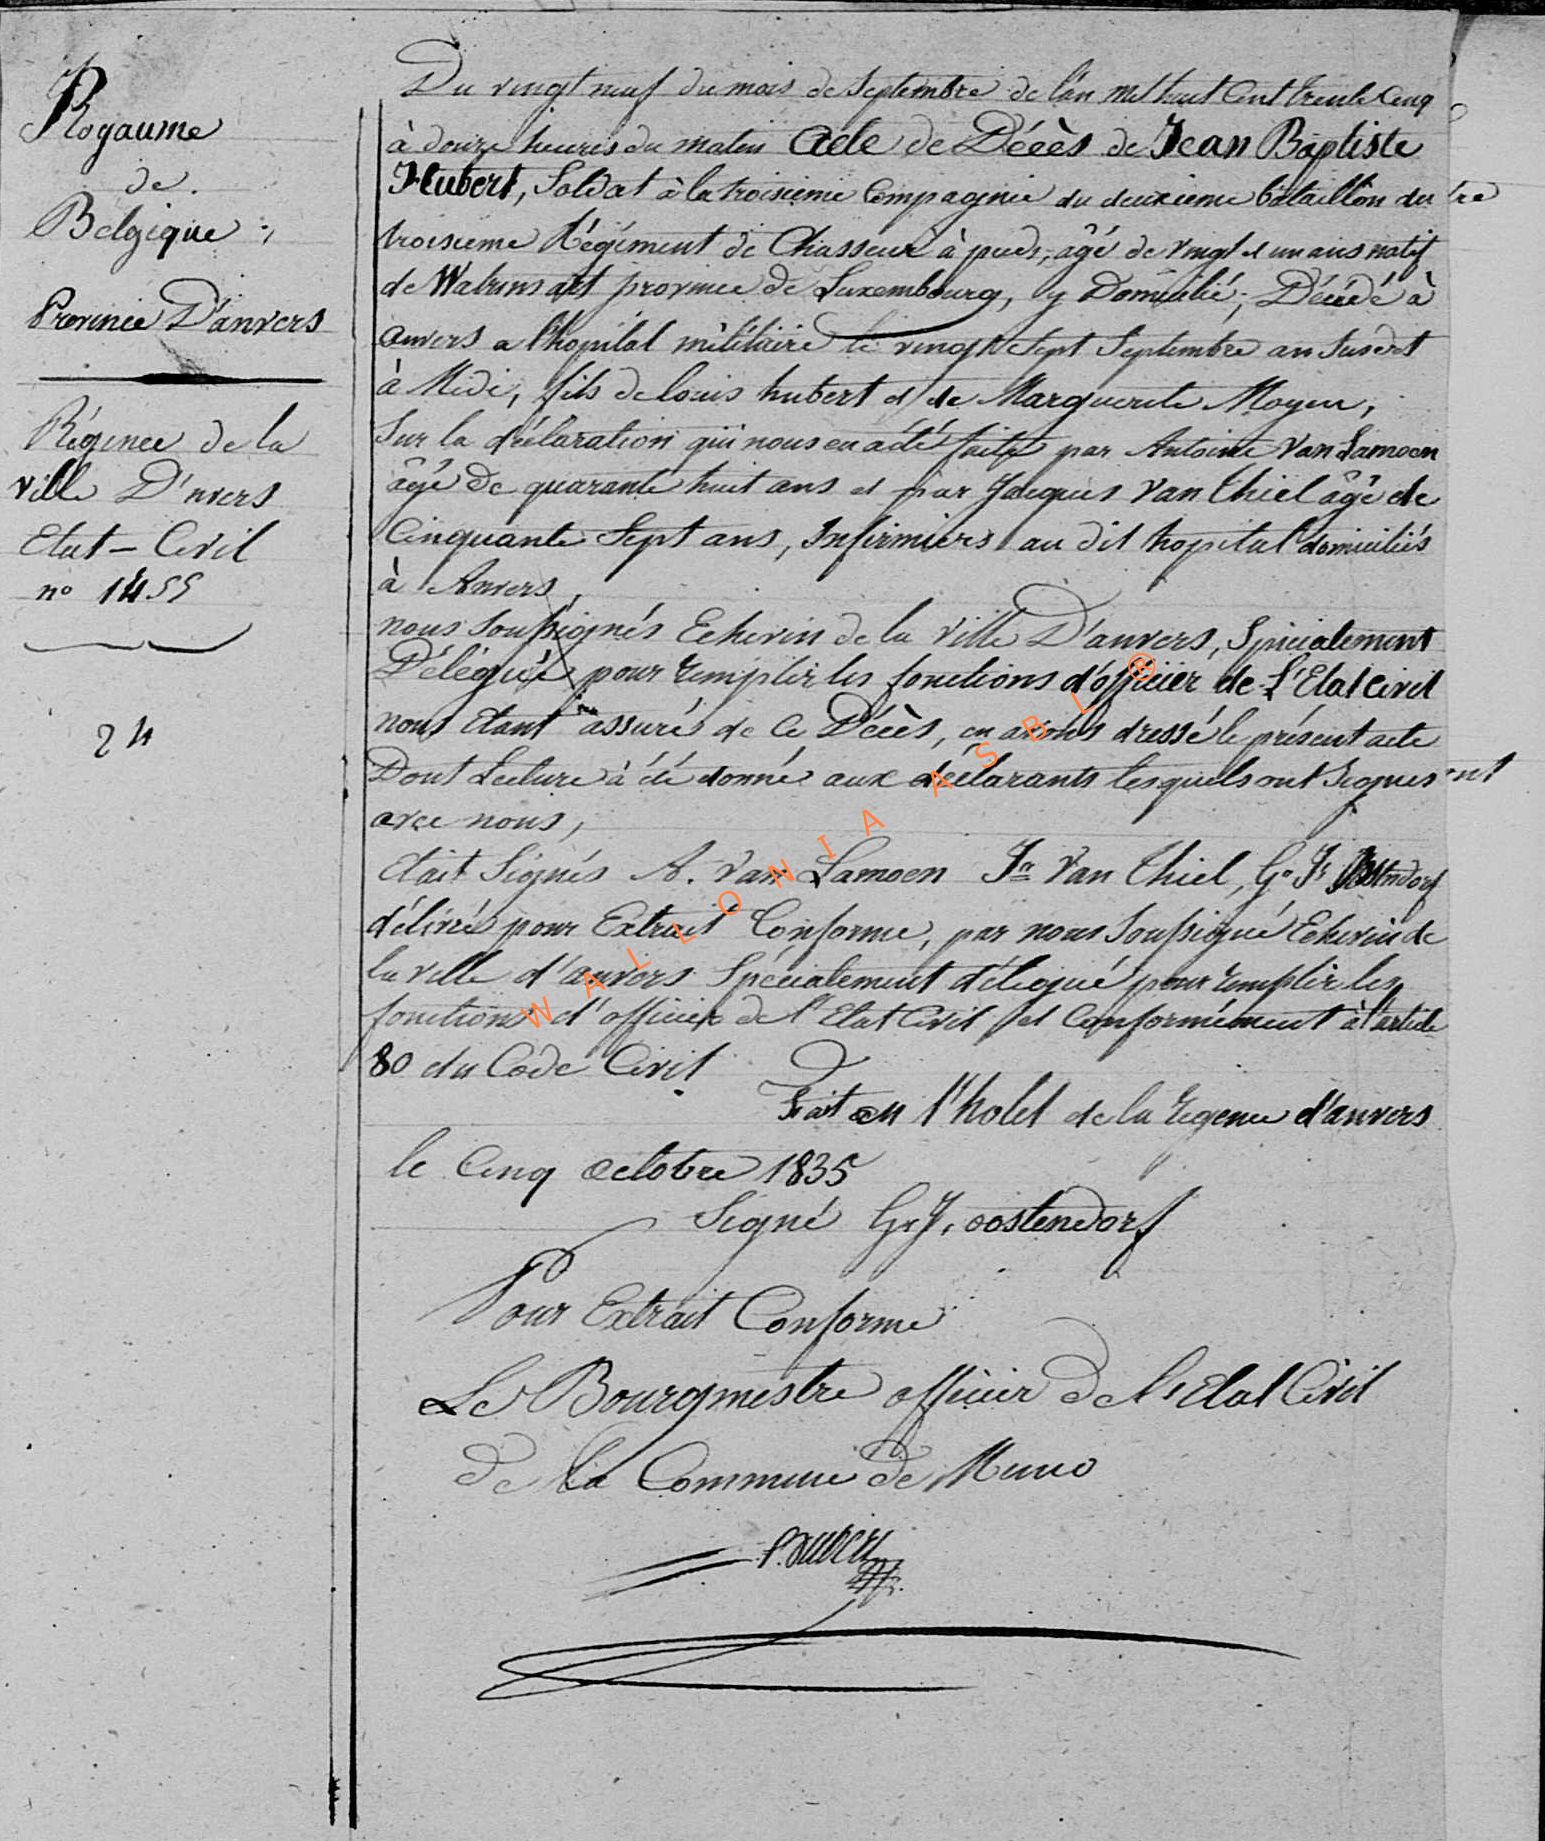 Royaume
de
Belgique
Province D'anvers
Régence de la
ville D'nvers
Etat - Civil
no 1455
24
Du vingt neuf du mois de Septembre de l'an mil huit Cent trente Cinq
à douze heures du matin Acte de Décès de Jean Baptiste
Hubert, Soldat à la troisieme Compagnie du deuxieme bataillon du
troisieme Régiment de Chasseur à pieds, âgé de vingt et un ans natif
de Watrinsart province de Luxembourg, y Domicilié, Décédé à
anvers a l'hopital militaire le vingt Sept Septembre an Susdit
à Midi, fils de louis hubert et de Marguerite Moyen,
Sur la déclaration qui nous en a été faite par Antoine Van Lamoen
âgé de quarante huit ans et par Jacques Van Thiel âgé de
Cinquante Sept ans, Infirmiers au dit hopital domiciliés
à Anvers,
nous Soussignés Echevin de la ville D'anvers, Spécialement
Délégué pour remplir les fonctions d'officier de l'Etat Civil
nous étant assurés de ce Décès, en avons dressé le présent acte
Dont Lecture à été donné aux déclarants lesquels ont Signés
avec nous,
Etait Signés A. Van Lamoen Jn Van Thiel, G. J. Oostendorf
délivrés pour Extrait Conforme, par nous Soussigné Echevin de
la ville d'anvers Spécialement délégué pour remplir les
fonctions d'officier de l'Etat Civil et Conformément à l'article
80 du Code Civil
Fait en l'hotel de la régence d'anvers
le Cinq octobre 1835
Signé G. J. oostendorf
Pour Extrait Conforme
Le Bourgmestre officier de l'Etat Civil
de la Commune de Muno
WALLONIA ASBL ®